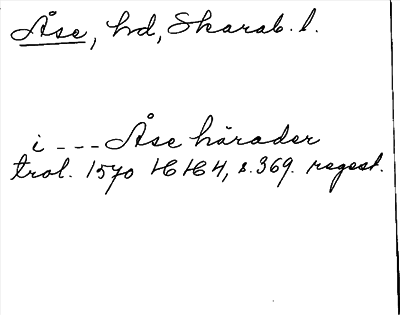 Åse, hd, Skarab. l.
i --- Åse härader
trol. 1570 HH 4, s. 369. regest.